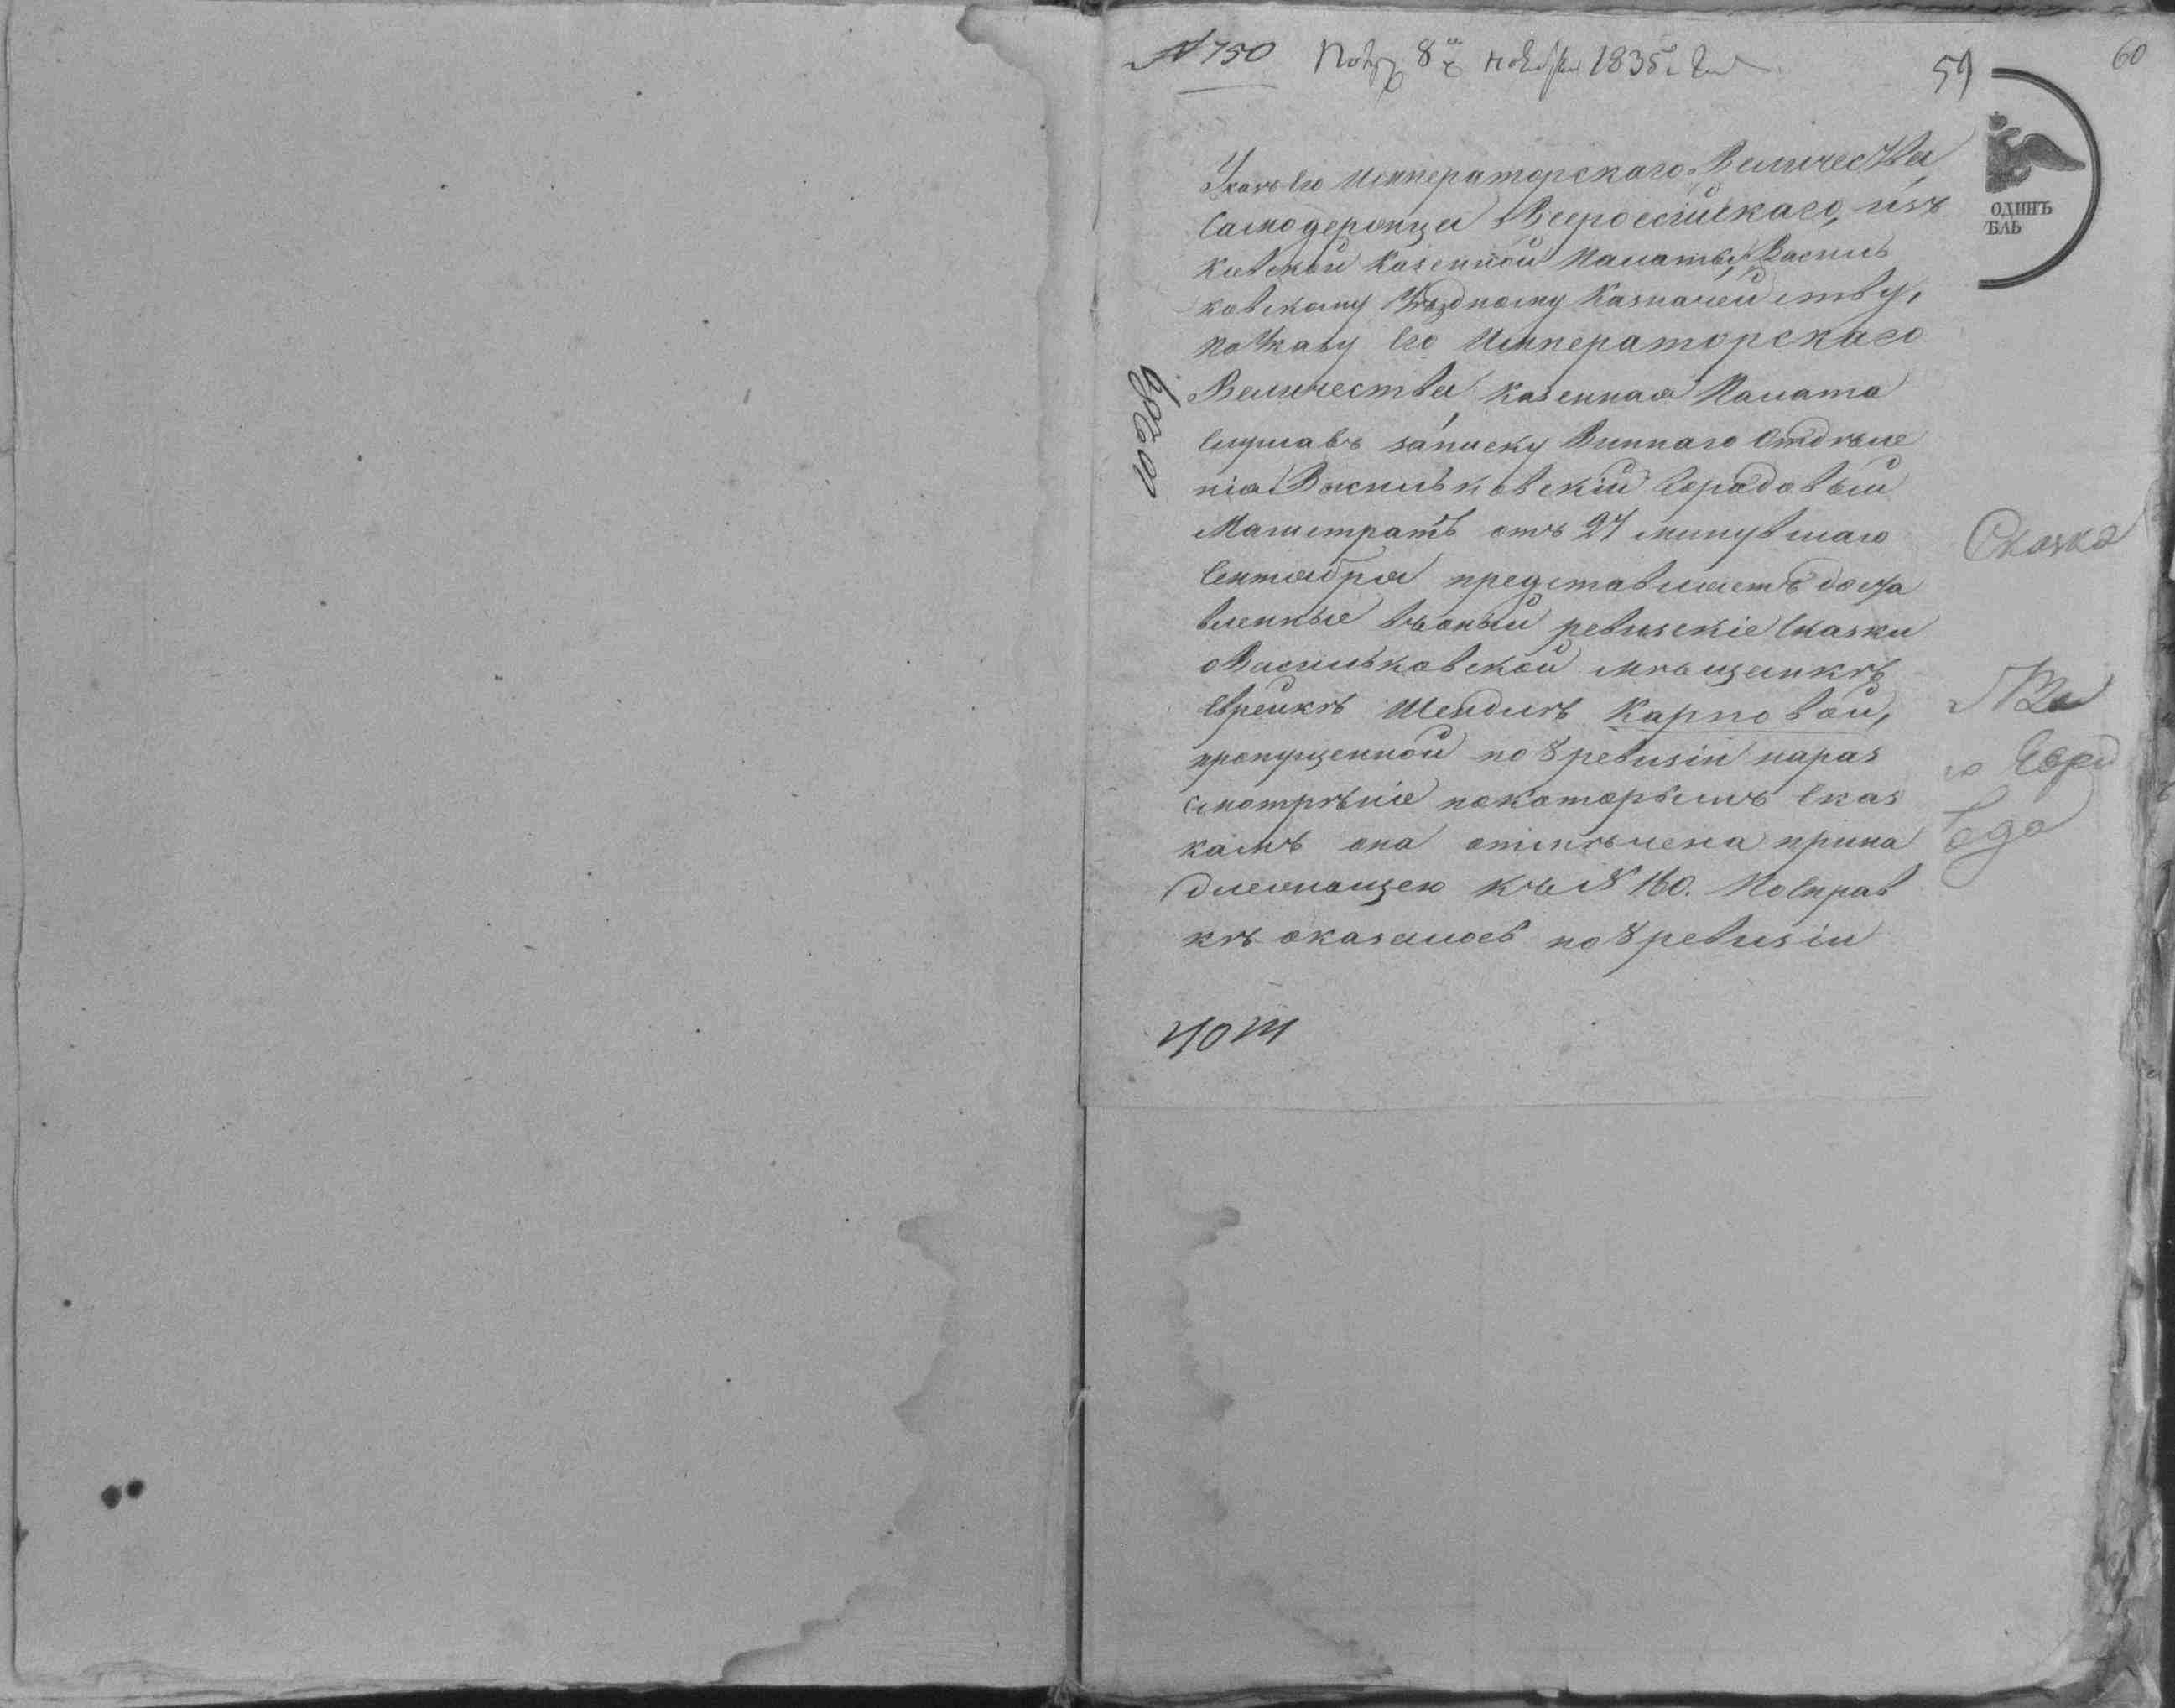 № 750 Полу 8го ноября 1835 года
59
60
Указъ Его Императорскаго Величества
Самодержца Всероссійскаго, изъ
Кіевской Казенной Палаты, Василь
ковскому Уѣздному Казначейству,
По Указу Его Императорскаго
Величества Казенная Палата
Слушавъ записку Виннаго Отдѣле
нія Васильковскій Городовый
Магистратъ отъ 27 минувшаго
Сентября представляетъ доста
вленные въ оный ревизскіе Сказки
о Васильковской мѣщанкѣ
Еврейкѣ Шендлѣ Карповой,
пропущенной по 8 ревизіи на раз
смотрѣніе по которымъ Сказ
камъ она отмѣчена прина
длежащею къ № 160. По Справ
кѣ оказалось по 8 ревизіи
ОДИНЪ
БЛЬ
Сказка
о Евре